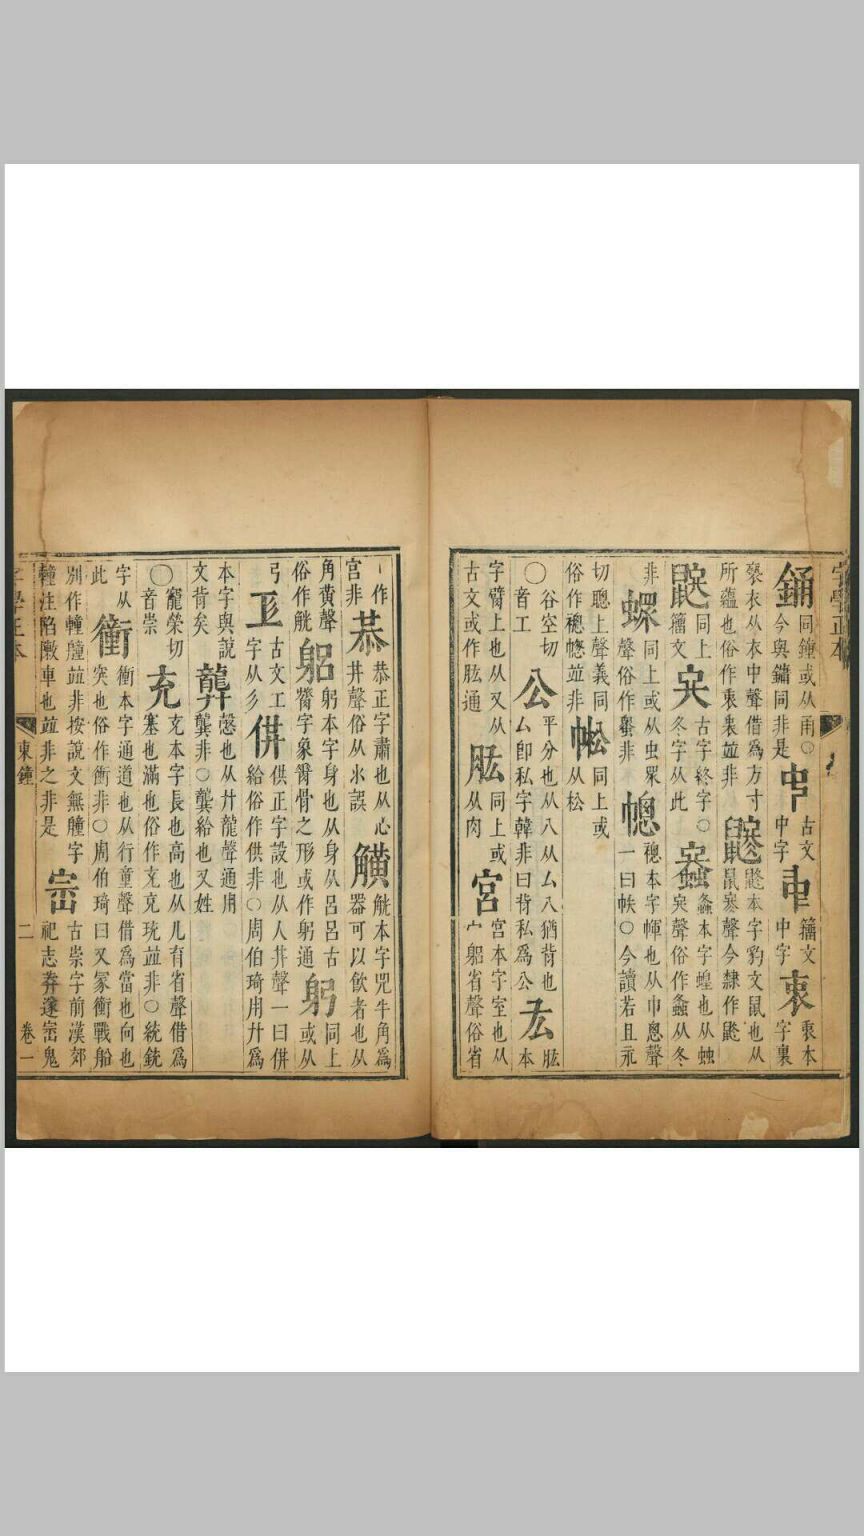 字學正本
銿 同鐘或从甬○今與鏞同非是 中 古文中字 籀文中字 衷 衷本字裏
褻衣从衣中聲借為方寸所蘊也俗作衷並非 鼨本字豹文鼠也从鼠聲今隸作鼨
同上籀文 古字終字○冬字从此 螽本字蝗也从䖵聲俗作螽从冬
非 同上或从虫眾聲俗作非 幒本字㡓也从巾悤聲一曰帙○今讀若且
切聰上聲義同俗作並非 㡆 同上或从松
○谷空切音工 公 平分也从八从厶八猶背也厶即私字韓非曰背私為公 厷 肱本
字臂上也从又从古文或作肱通 肱 同上或从肉 宮 宮本字室也从宀躳省聲俗省
丨作宮非 恭 恭正字肅也从心共聲俗从氺誤 觵 觥本字兕牛角為器可以飲者也从
角黃聲俗作觥 躳 躬本字身也从身从呂呂古膂字象膂骨之形或作躬通 躬 同上或从
弓 古文工字从彡 供 供正字設也从人共聲一曰供給俗作供非○周伯琦用廾為
本字與說文背矣 龔 愨也从廾龍聲通用龔非○龔給也又姓
○寵榮切音崇 充 充本字長也高也从儿育省聲借為塞也滿也俗作充珫並非○統銃
字从此 衝 衝本字通道也从行童聲借為當也向也突也俗作衝非○周伯琦曰又冢衝戰船
別作艟並非按說文無艟字 注陷敶車也並非之非是 崈 古崇字前漢郊祀志莽遂崈鬼
字學正本 東鐘 二 卷一